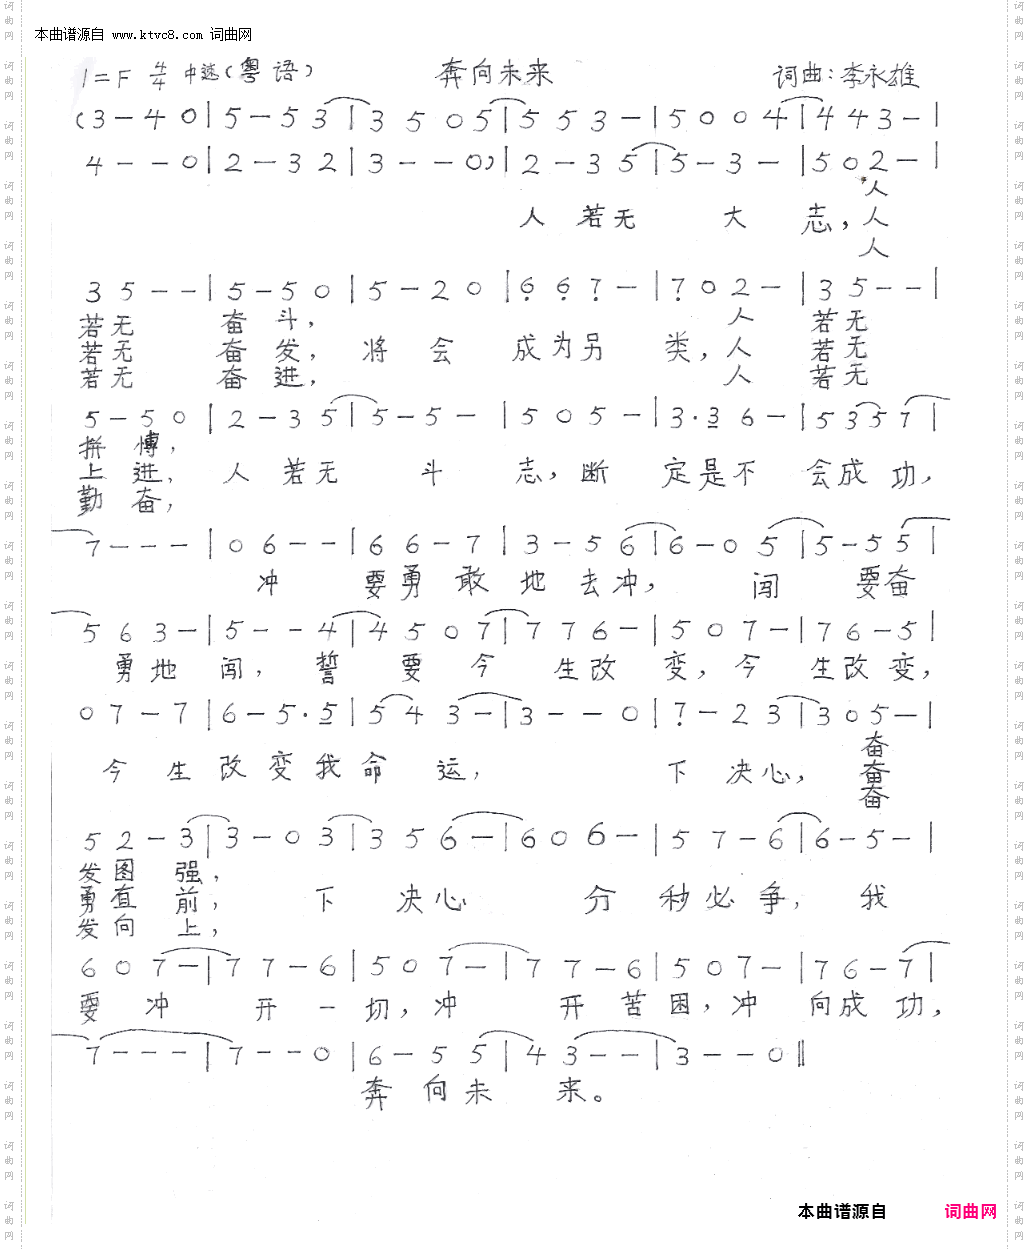 本曲谱源自 www.ktvc8.com 词曲网
1=F 4/4 中速(粤语) 奔向未来 词曲:李永雄
(3-40|5-53|3505|553-|5004|443-|
4--0|2-32|3--0)|2-35|5-3-|502-|
人
人 若无 大 志,人
人
35--|5-50|5-20|667-|702-|35--|
若无 奋 斗, 人 若无
若无 奋 发, 将 会 成为另 类,人 若无
若无 奋 进, 人 若无
5-50|2-35|5-5-|505-|3·36-|5357|
拼 愽,
上 进, 人 若无 斗 志,断 定是不 会成功,
勤 奋,
7---|06--|66-7|3-56|6-05|5-55|
冲 要勇敢地去冲, 闯 要奋
563-|5--4|4507|776-|507-|76-5|
勇地 闯, 誓 要 今 生改 变,今 生改变,
07-7|6-5·5|543-|3--0|7-23|305-|
奋
今 生 改 变我命 运, 下 决心, 奋
奋
52-3|3-03|356-|606-|57-6|6-5-|
发图 强,
勇直 前, 下 决心 分 秒必争, 我
发向 上,
607-|77-6|507-|77-6|507-|76-7|
要 冲 开一切,冲 开苦困,冲 向成功,
7---|7--0|6-55|43--|3--0‖
奔 向未 来。
本曲谱源自 词曲网